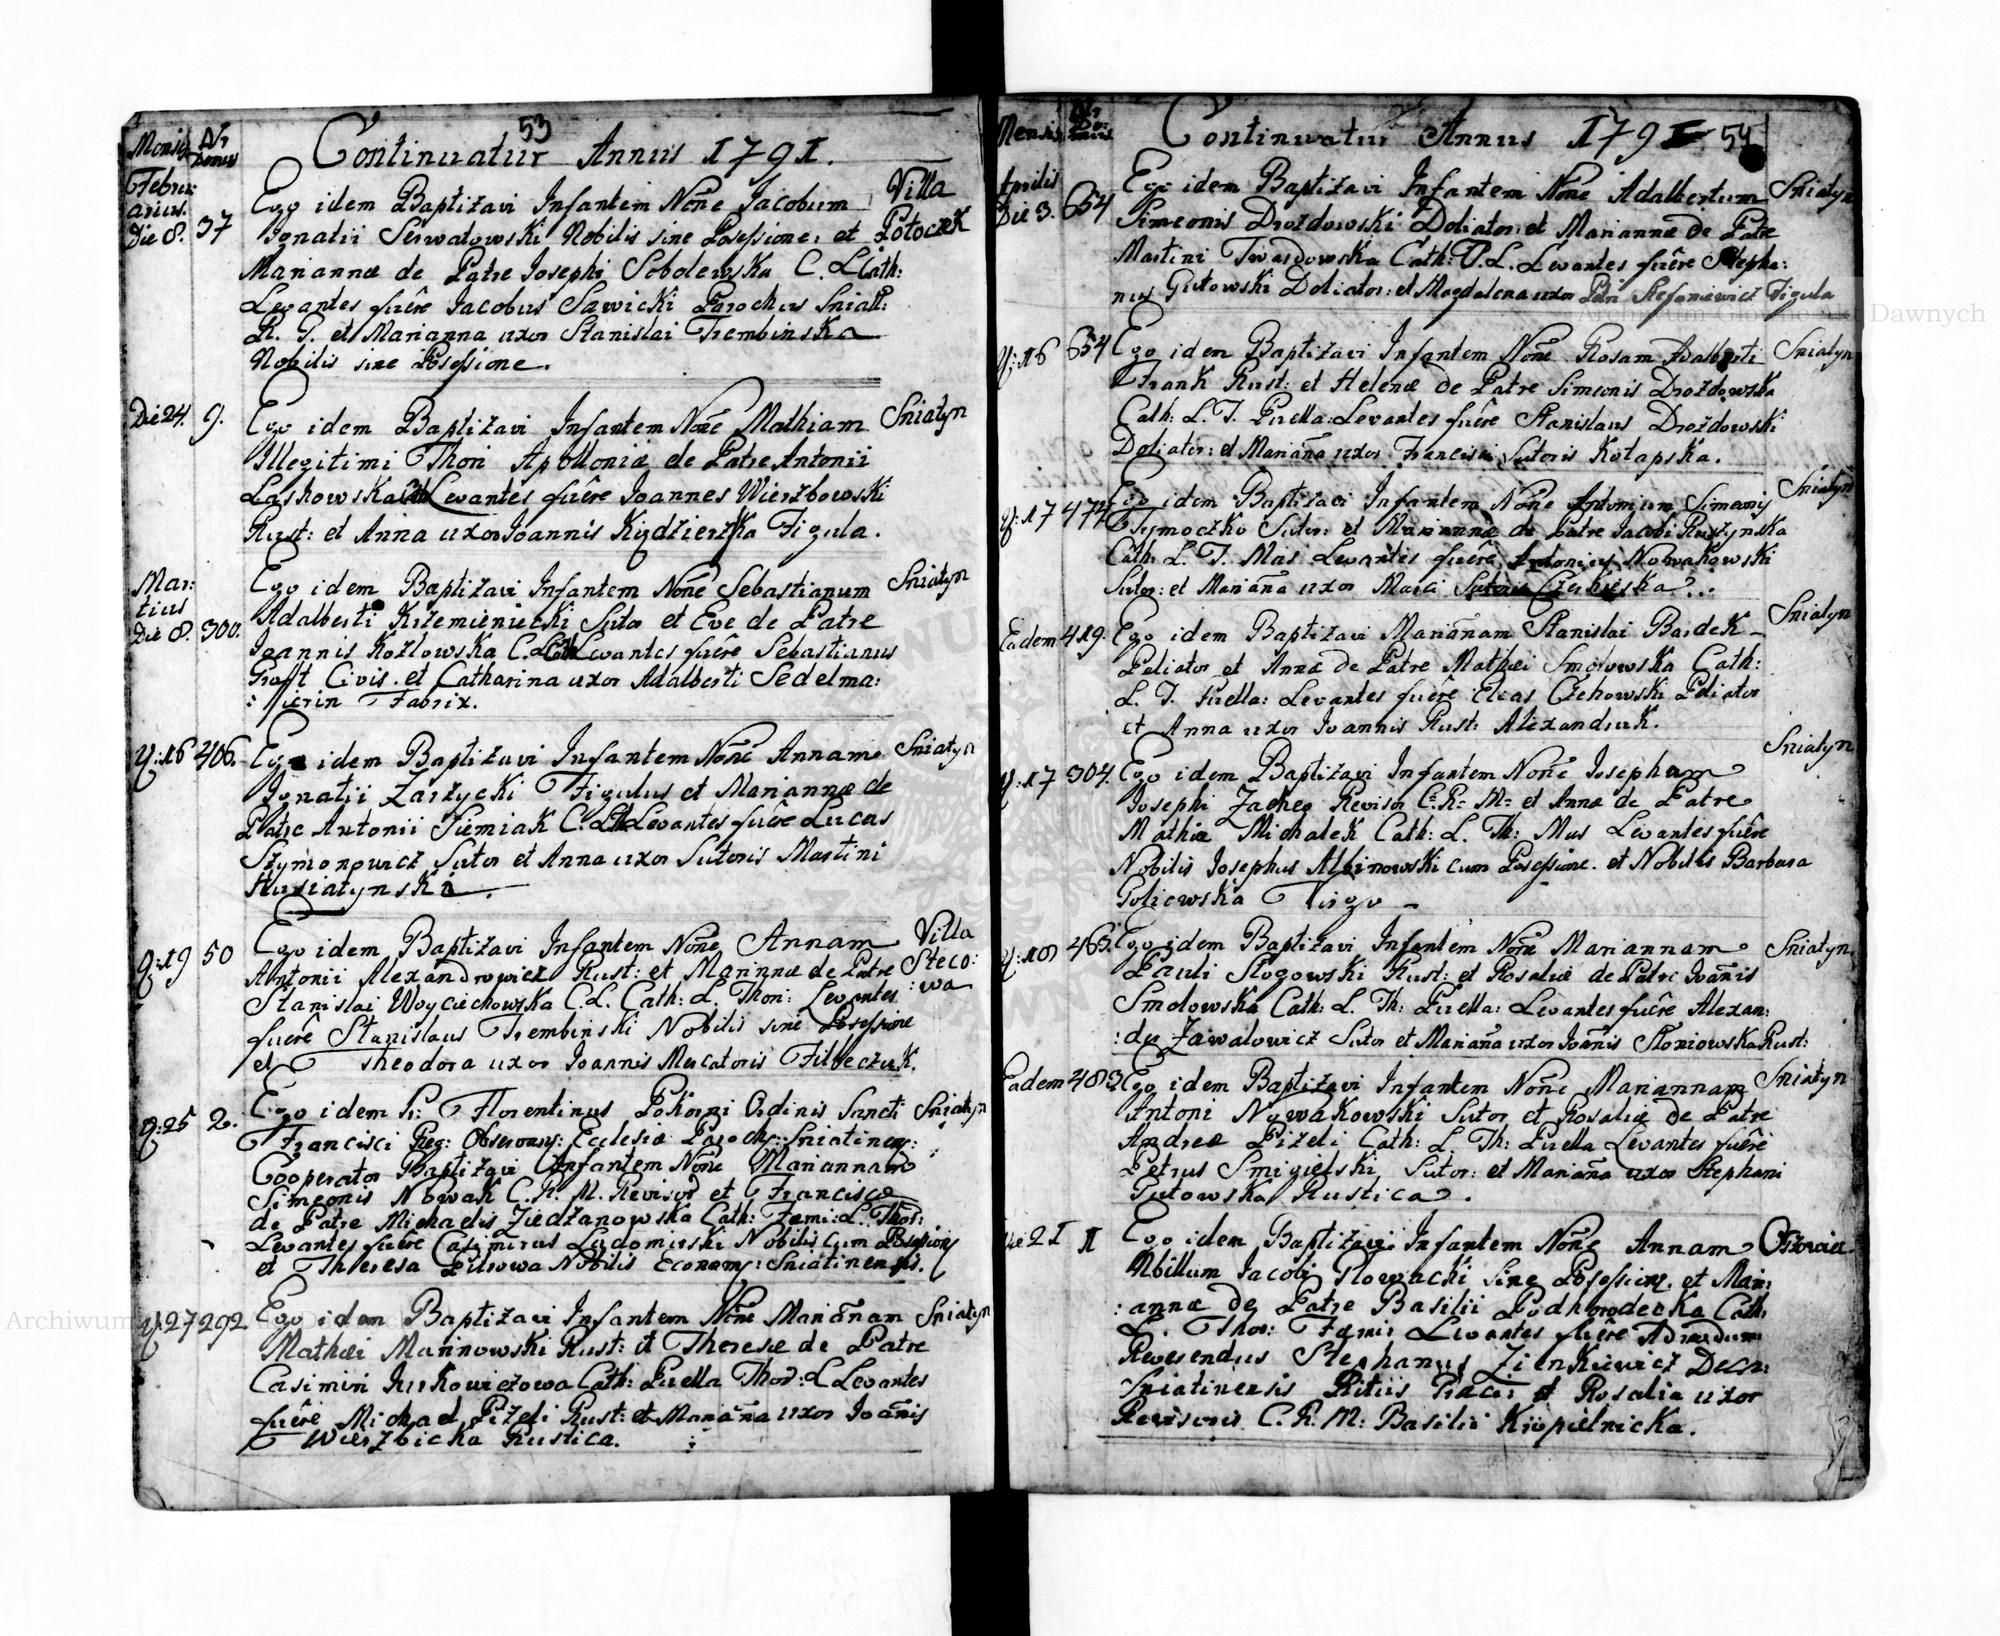 53
Continuatur Annus 1791.
Mensis Nr Domus
Februarius.
Die 8. 37
Ego idem Baptizavi Infantem None Jacobum Villa
Ignatii Serwatowski Nobilis sine Posessione: et Potoczek
Mariannæ de Patre Josephi Sobolewska C. L. Cath:
Levantes fuêre Jacobus Sawicki Parochus Sniatt:
R. G. et Marianna uxor Stanislai Trembinska
Nobilis sine Posessione.
Die 24. 9. Ego idem Baptizavi Infantem Nône Mathiam Sniatyn
Illegitimi Thori Apolloniæ de Patre Antonii
Laskowska Levantes fuêre Joannes Wierzbowski
Rust: et Anna uxor Joannis Kędzierska Figula.
Mar:
tius
Die 8. 300.
Ego idem Baptizavi Infantem Nône Sebastianum Sniatyn
Adalberti Krzemieniecki Sutor et Evæ de Patre
Joannis Kozlowska C. Levantes fuêre Sebastianus
Grofft Civis. et Catharina uxor Adalberti Sedelma:
:jerin Fabrix.
D: 16 406. Ego idem Baptizavi Infantem Nône Annam Sniatyn
Ignatii Zarzycki Figulus et Mariannæ de
Patre Antonii Siemiak C. Levantes fuêre Lucas
Szymonowicz Sutor et Anna uxor Sutoris Martini
Husiatynska.
D: 19 50 Ego idem Baptizavi Infantem Nône Annam Villa
Antonii Alexandrowicz Rust: et Mariannæ de Patre Steco:
Stanislai Woyciechowska C. L. Cath: L. Thori: Levantes :wa
fuêre Stanislaus Trembinski Nobilis sine Posessione
et Theodora uxor Joannis Mercatoris Filbeczuk.
D: 25 2. Ego idem Fr: Florentinus Pokorni Ordinis Sancti Sniatyn
Francisci Reg: Observan: Ecclesiæ Paroch: Sniatinen:
Cooperator Baptizavi Infantem Nône Mariannam
Simeonis Nowak C. R. M. Revisor et Francisca
de Patre Michaelis Ziedzanowska Cath: Femi: L. Thor:
Levantes fuêre Casimirus Ludomirski Nobilis cum Posession
et Theresa Nobilis Econom: Sniatinensis.
D: 27 292 Ego idem Baptizavi Infantem Nône Mariãnam Sniatyn
Mathæi Marinowski Rust: et Theresæ de Patre
Casimiri Jurkowiczowa Cath: Puella Thor: L Levantes
fuêre Michael Pizeli Rust: et Mariãna uxor Joãnis
Wierzbicka Rustica.
Mensis Nr Domus
Continuatur Annus 1791 54
Aprilis
Die 3. 634
Ego idem Baptizavi Infantem Nône Adalbertum Sniatyn
Simeonis Drozdowski Doliator: et Mariannæ de Patre
Martini Twardowska Cath: T. L. Levantes fuêre Stepha:
nus Gutowski Doliator: et Magdalena uxor Stefaniewicz Figula
D: 16 634 Ego idem Baptizavi Infantem Nône Rosam Adalberti Sniatyn
Frank Rust: et Helenæ de Patre Simeonis Drozdowska
Cath: L. T. Puella: Levantes fuêre Stanislaus Drozdowski
Doliator: et Mariãna uxor Francisci Sutoris Kotapska.
D: 17 472 Ego idem Baptizavi Infantem Nône Antonium Simeonis Sniatyn
Tymoczko Sutor: et Mariannæ de Patre Jacobi Ruszynska
Cath: L. T. Mas Levantes fuêre Antonius Nowakowski
Sutor: et Mariãna uxor Marci Sutoris
Eadem 419. Ego idem Baptizavi Mariãnam Stanislai Bardek Sniatyn
Peliator et Annæ de Patre Mathæi Smolowska Cath:
L. T. Puella: Levantes fuêre Elias Czehowski Peliator
et Anna uxor Joannis Rust: Alexandruk.
D: 17 304. Ego idem Baptizavi Infantem Nône Josephum Sniatyn
Josephi Revisor C: R: M: et Annæ de Patre
Mathiæ Michalek Cath: L. Th: Mas Levantes fuêre
Nobilis Josephus Albinowski cum Posessione. et Nobilis Barbara
Goliewska Virgo
D: 18 463. Ego idem Baptizavi Infantem Nône Mariannam Sniatyn.
Pauli Rogowski Rust: et Rosaliæ de Patre Joãnis
Smolowska Cath: L. Th: Puella: Levantes fuêre Alexan:
:der Zawalowicz Sutor et Mariãna uxor Joãnis Sloniowska Rust:
Eadem 483. Ego idem Baptizavi Infantem Nône Mariannam Sniatyn
Antoni Nowakowski Sutor et Rosaliæ de Patre
Andreæ Pizeli Cath: L. Th: Puella Levantes fuêre
Petrus Smigielski Sutor: et Mariãna uxor Stephani
Gutowska Rustica.
Die 21 1 Ego idem Baptizavi Infantem Nône Annam
Nbillum Jacobi Slowacki sine Posession. et Mari:
:annæ de Patre Basilii Podhorodecka Cath:
L. Thor: Fæmi: Levantes fuêre Admodum
Reverendus Stephanus Zienkiewicz Decan:
Sniatinensis Rituis Græci et Rosalia uxor
Revisoris C. R. M: Basilii Kropielnicka.